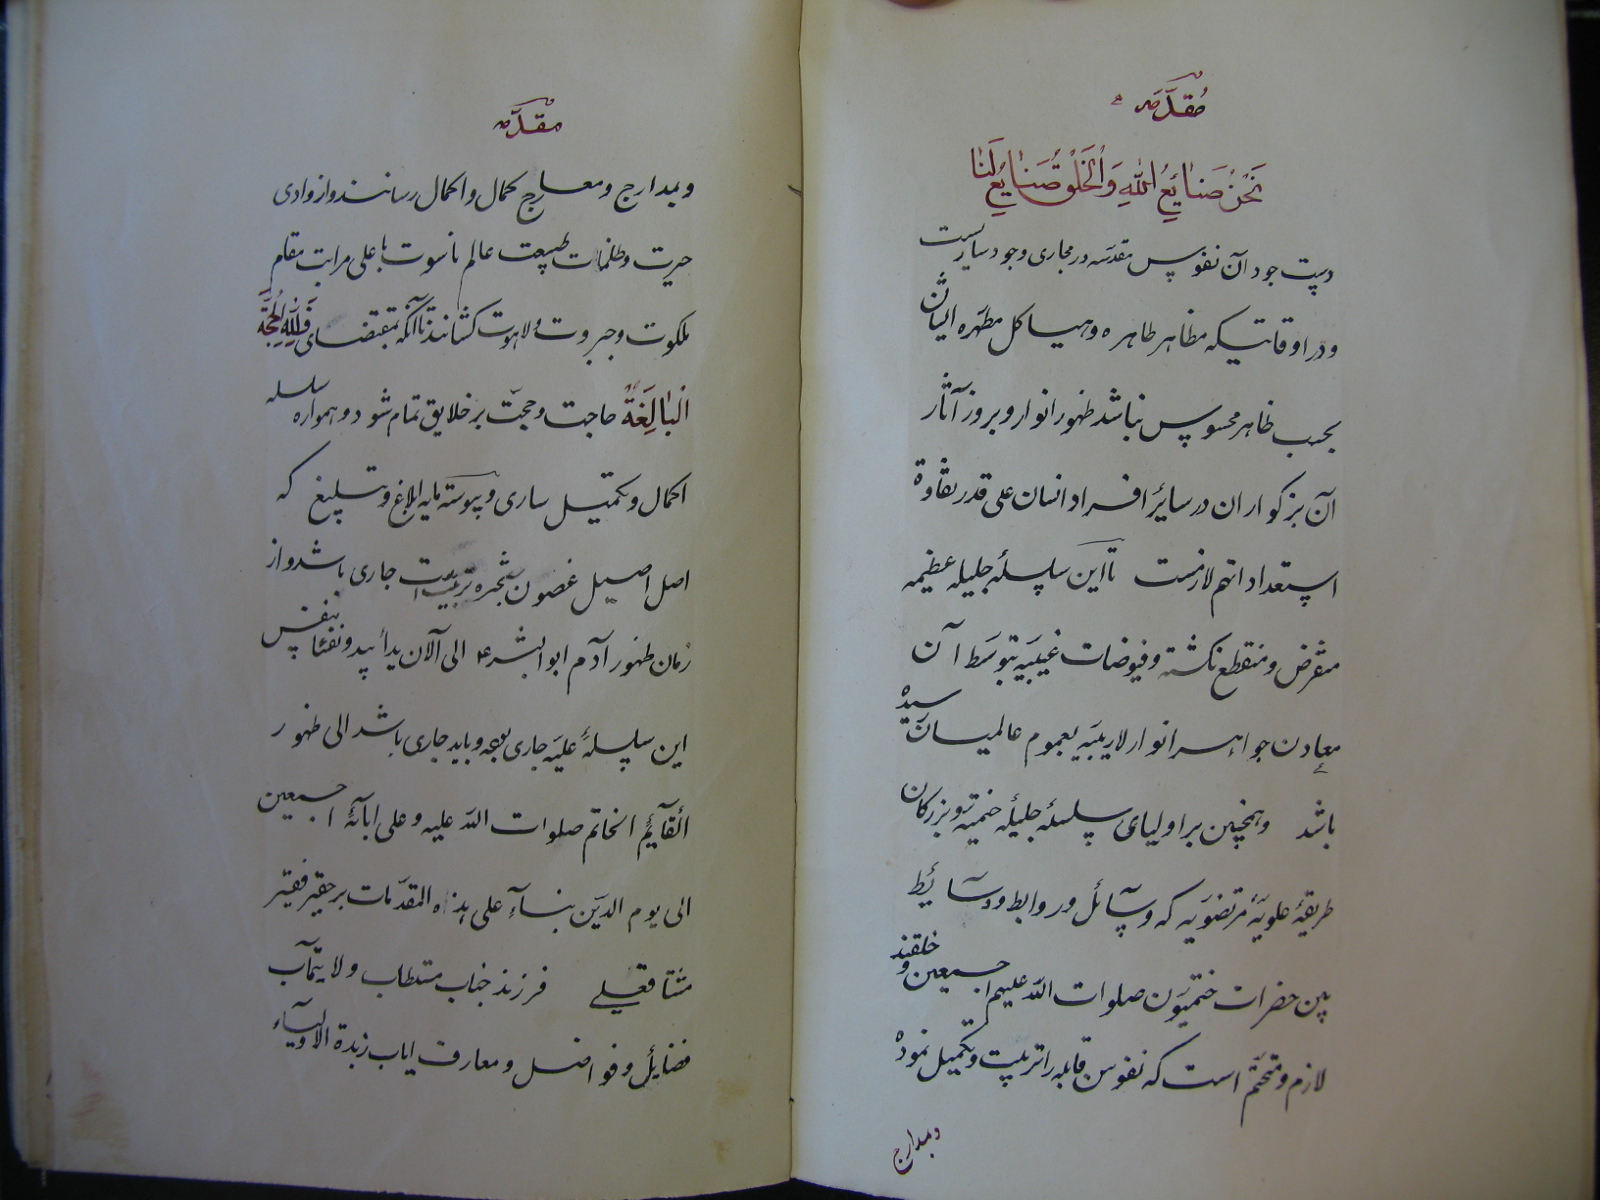 مقدّمه
نَحْنُ صَنایِعُ اللّٰهِ وَالْخَلْقُ صَنایِعُ لَنا
دست جود آن نفوس مقدسه در مجاری وجود ساریست
و در اوقاتیکه مظاهر طاهره و هیاکل مطهره الیشان
بحسب ظاهر محسوس نباشد ظهور انوار و بروز آثار
آن بزرکواران در سایر افراد انسان علی قدر نقاوة
استعداداتهم لازمست تا این سلسلهٔ جلیله عظیمه
منقرض و منقطع نکشته و فیوضات غیبیه بتوسط آن
معادن جواهر انوار لاریبیه بعموم عالمیان رسیده
باشد و همچنین بر اولیای سلسلهٔ جلیلهٔ ختمیه و بزرکان
طریقهٔ علویهٔ مرتضویه که وسآئل و روابط و وسآئط
بین حضرات ختمیّون صلوات اللّه علیهم اجمعین و خلقند
لازم و متحتم است که نفوس قابله را تربیت و تکمیل نموده
و بمدارج
مقدّمه
و بمدارج و معارج کمال و اکمال رسانند و از وادی
حیرت و ظلمات طبیعت عالم ناسوت باعلی مراتب مقام
ملکوت و جبروت و لاهوت کشانند تا آنکه بمقتضای فَلِلّٰهِ الْحُجَّة
الْبٰالِغَةُ حاجت و حجّت بر خلایق تمام شود و همواره سلسله
اکمال و تکمیل ساری و پیوسته مایه ابلاغ و تبلیغ که
اصل اصیل غصون شجره تربیت است جاری باشد و از
زمان ظهور آدم ابوالبشر ع الی آلان یداً بید و نفساً بنفس
این سلسلهٔ علیّه جاری بوده و باید جاری باشد الی ظهور
القآئم الخاتم صلوات اللّه علیه و علی ابآئه اجمعین
الی یوم الدّین بنآءً علی هذه المقدّمات بر حقیر فقیر
مشتاقعلی فرزند جناب مستطاب ولایتمآب
فضایل و فواضل و معارف ایاب زبدة الاولیآء